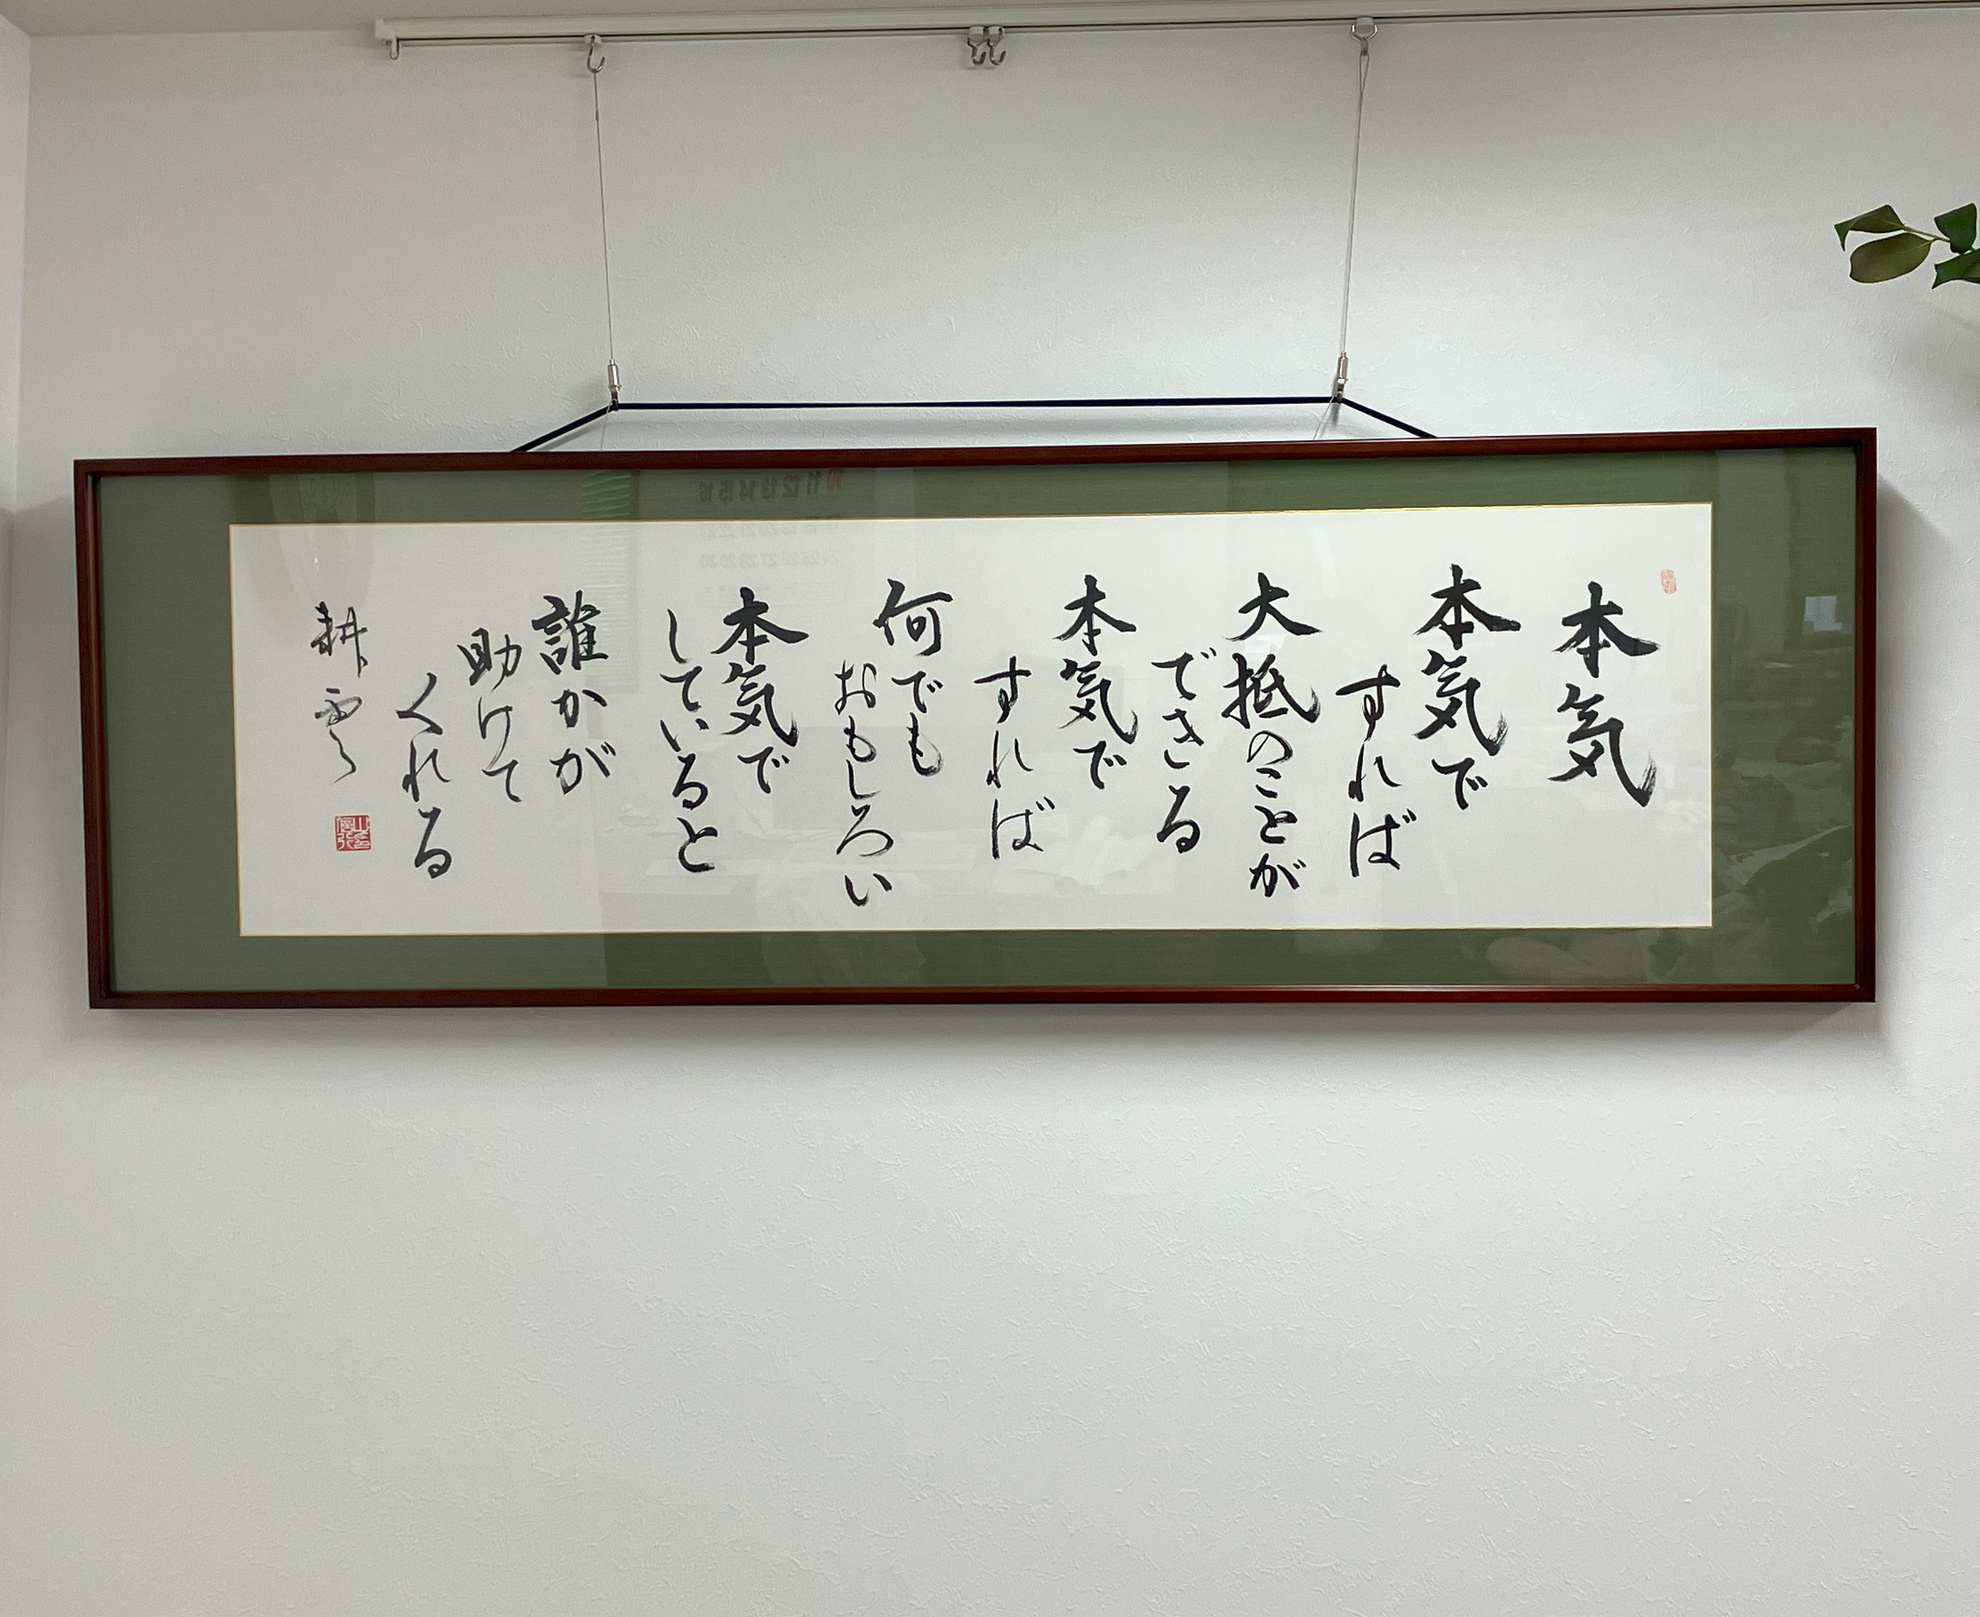 本気
本気で
すれば
大抵のことが
できる
本気で
すれば
何でも
おもしろい
本気で
していると
誰かが
助けて
くれる
耕雲